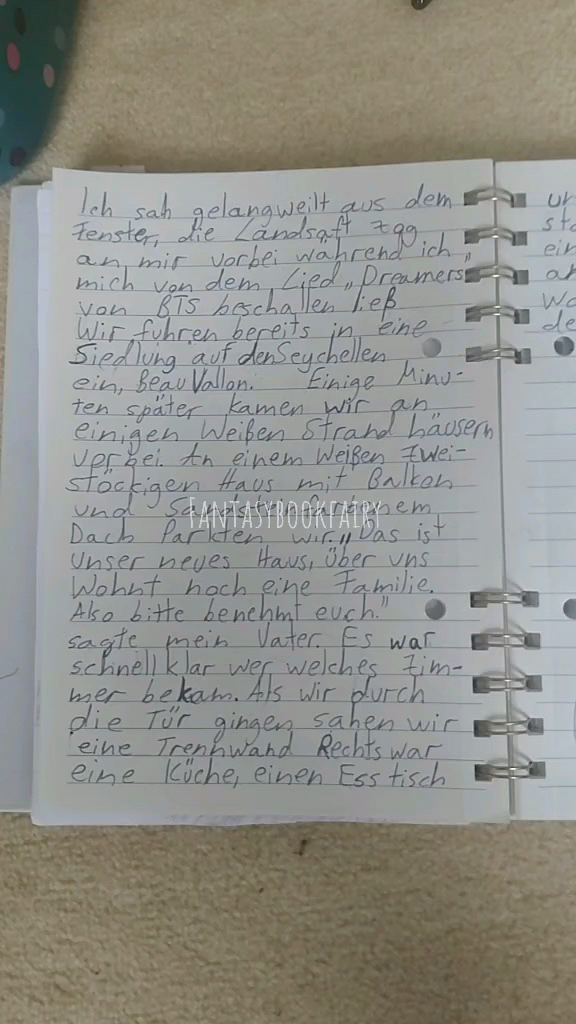 Ich sah gelangweilt aus dem
Fenster, die Landsaft zog
an mir vorbei während ich
mich von dem Lied „Dreamers"
von BTS beschallen ließ
Wir fuhren bereits in eine
Siedlung auf den Seychellen
ein, Beau Vallon. Einige Minu-
ten später kamen wir an
einigen Weißen Strand häusern
vorbei. An einem Weißen zwei-
stöckigen Haus mit Balkon
und Sandsteinfarbenem
FANTASYBOOKFAIRY
Dach Parkten wir. „Das ist
unser neues Haus, über uns
Wohnt noch eine Familie.
Also bitte benehmt euch."
sagte mein Vater. Es war
schnell klar wer welches Zim-
mer bekam. Als wir durch
die Tür gingen sahen wir
eine Trennwand Rechts war
eine Küche, einen Ess tisch
ein